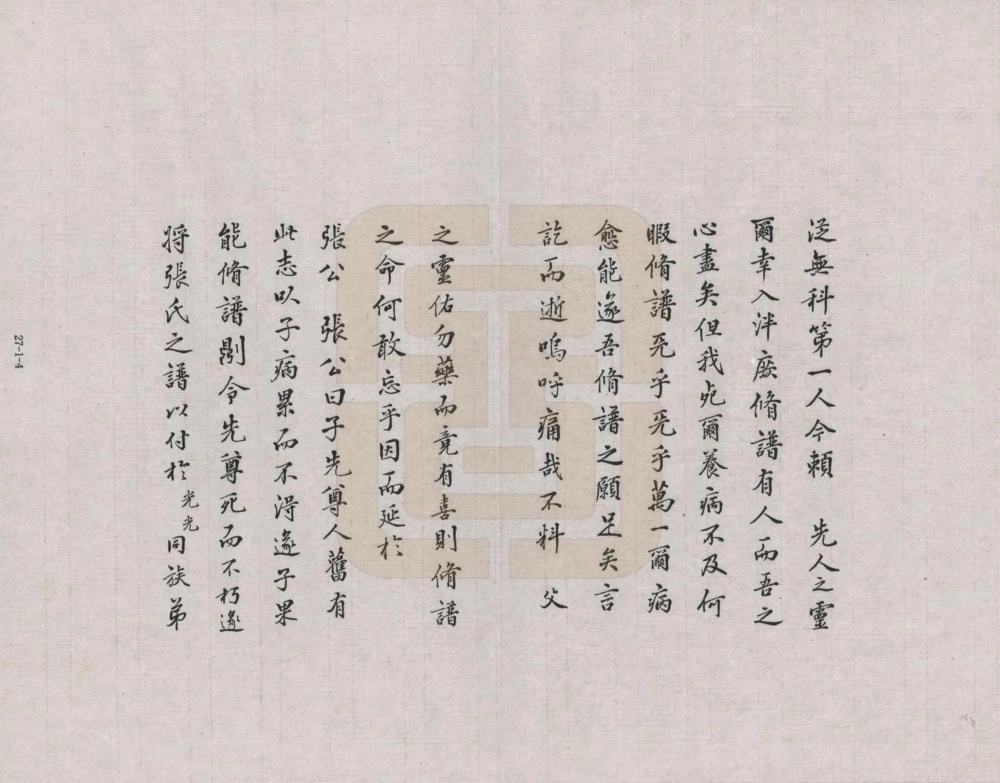 從無科第一人今賴 先人之靈
爾幸入泮廒脩譜有人而吾之
心盡矣但我死爾養病不及何
暇脩譜兄乎兄乎萬一爾病
愈能遂吾脩譜之願足矣言
訖而逝嗚呼痛哉不料 父
之靈佑勿藥而竟有喜則脩譜
之命何敢忘乎因而延於
張公 張公曰子先尊人舊有
此志以子病累而不得遂子果
能脩譜則令先尊死而不朽遂
將張氏之譜以付於光光同族弟
27-1-4